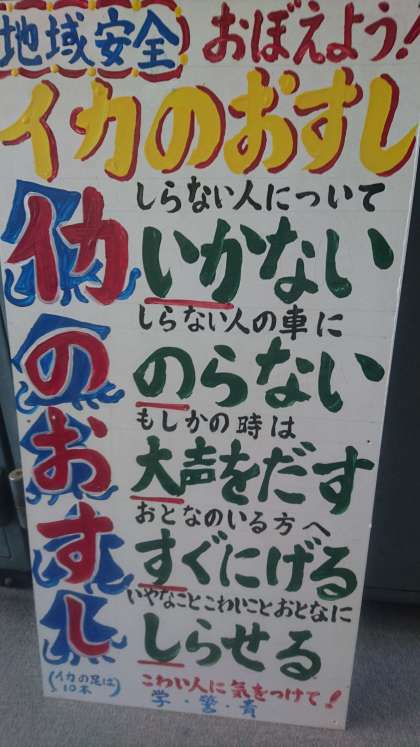 地域安全 おぼえよう!
イカのおすし
イカ しらない人について
いかない
の しらない人の車に
のらない
お もしかの時は
大声をだす
す おとなのいる方へ
すぐにげる
し いやなことこわいことおとなに
しらせる
(イカの足は10本) こわい人に気をつけて!
学・警・青